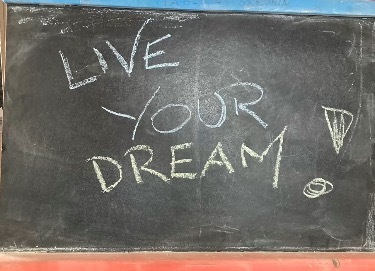 LIVE
YOUR
DREAM!